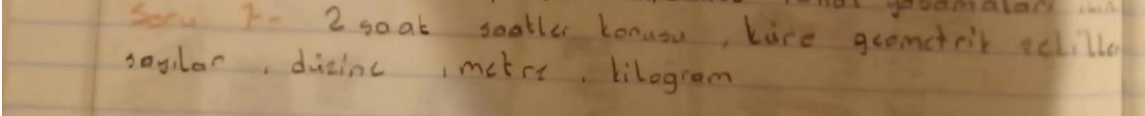 Soru 7- 2 saat saatler konusu, küre geometrik şekiller
sayılar, düzine, metre, kilogram